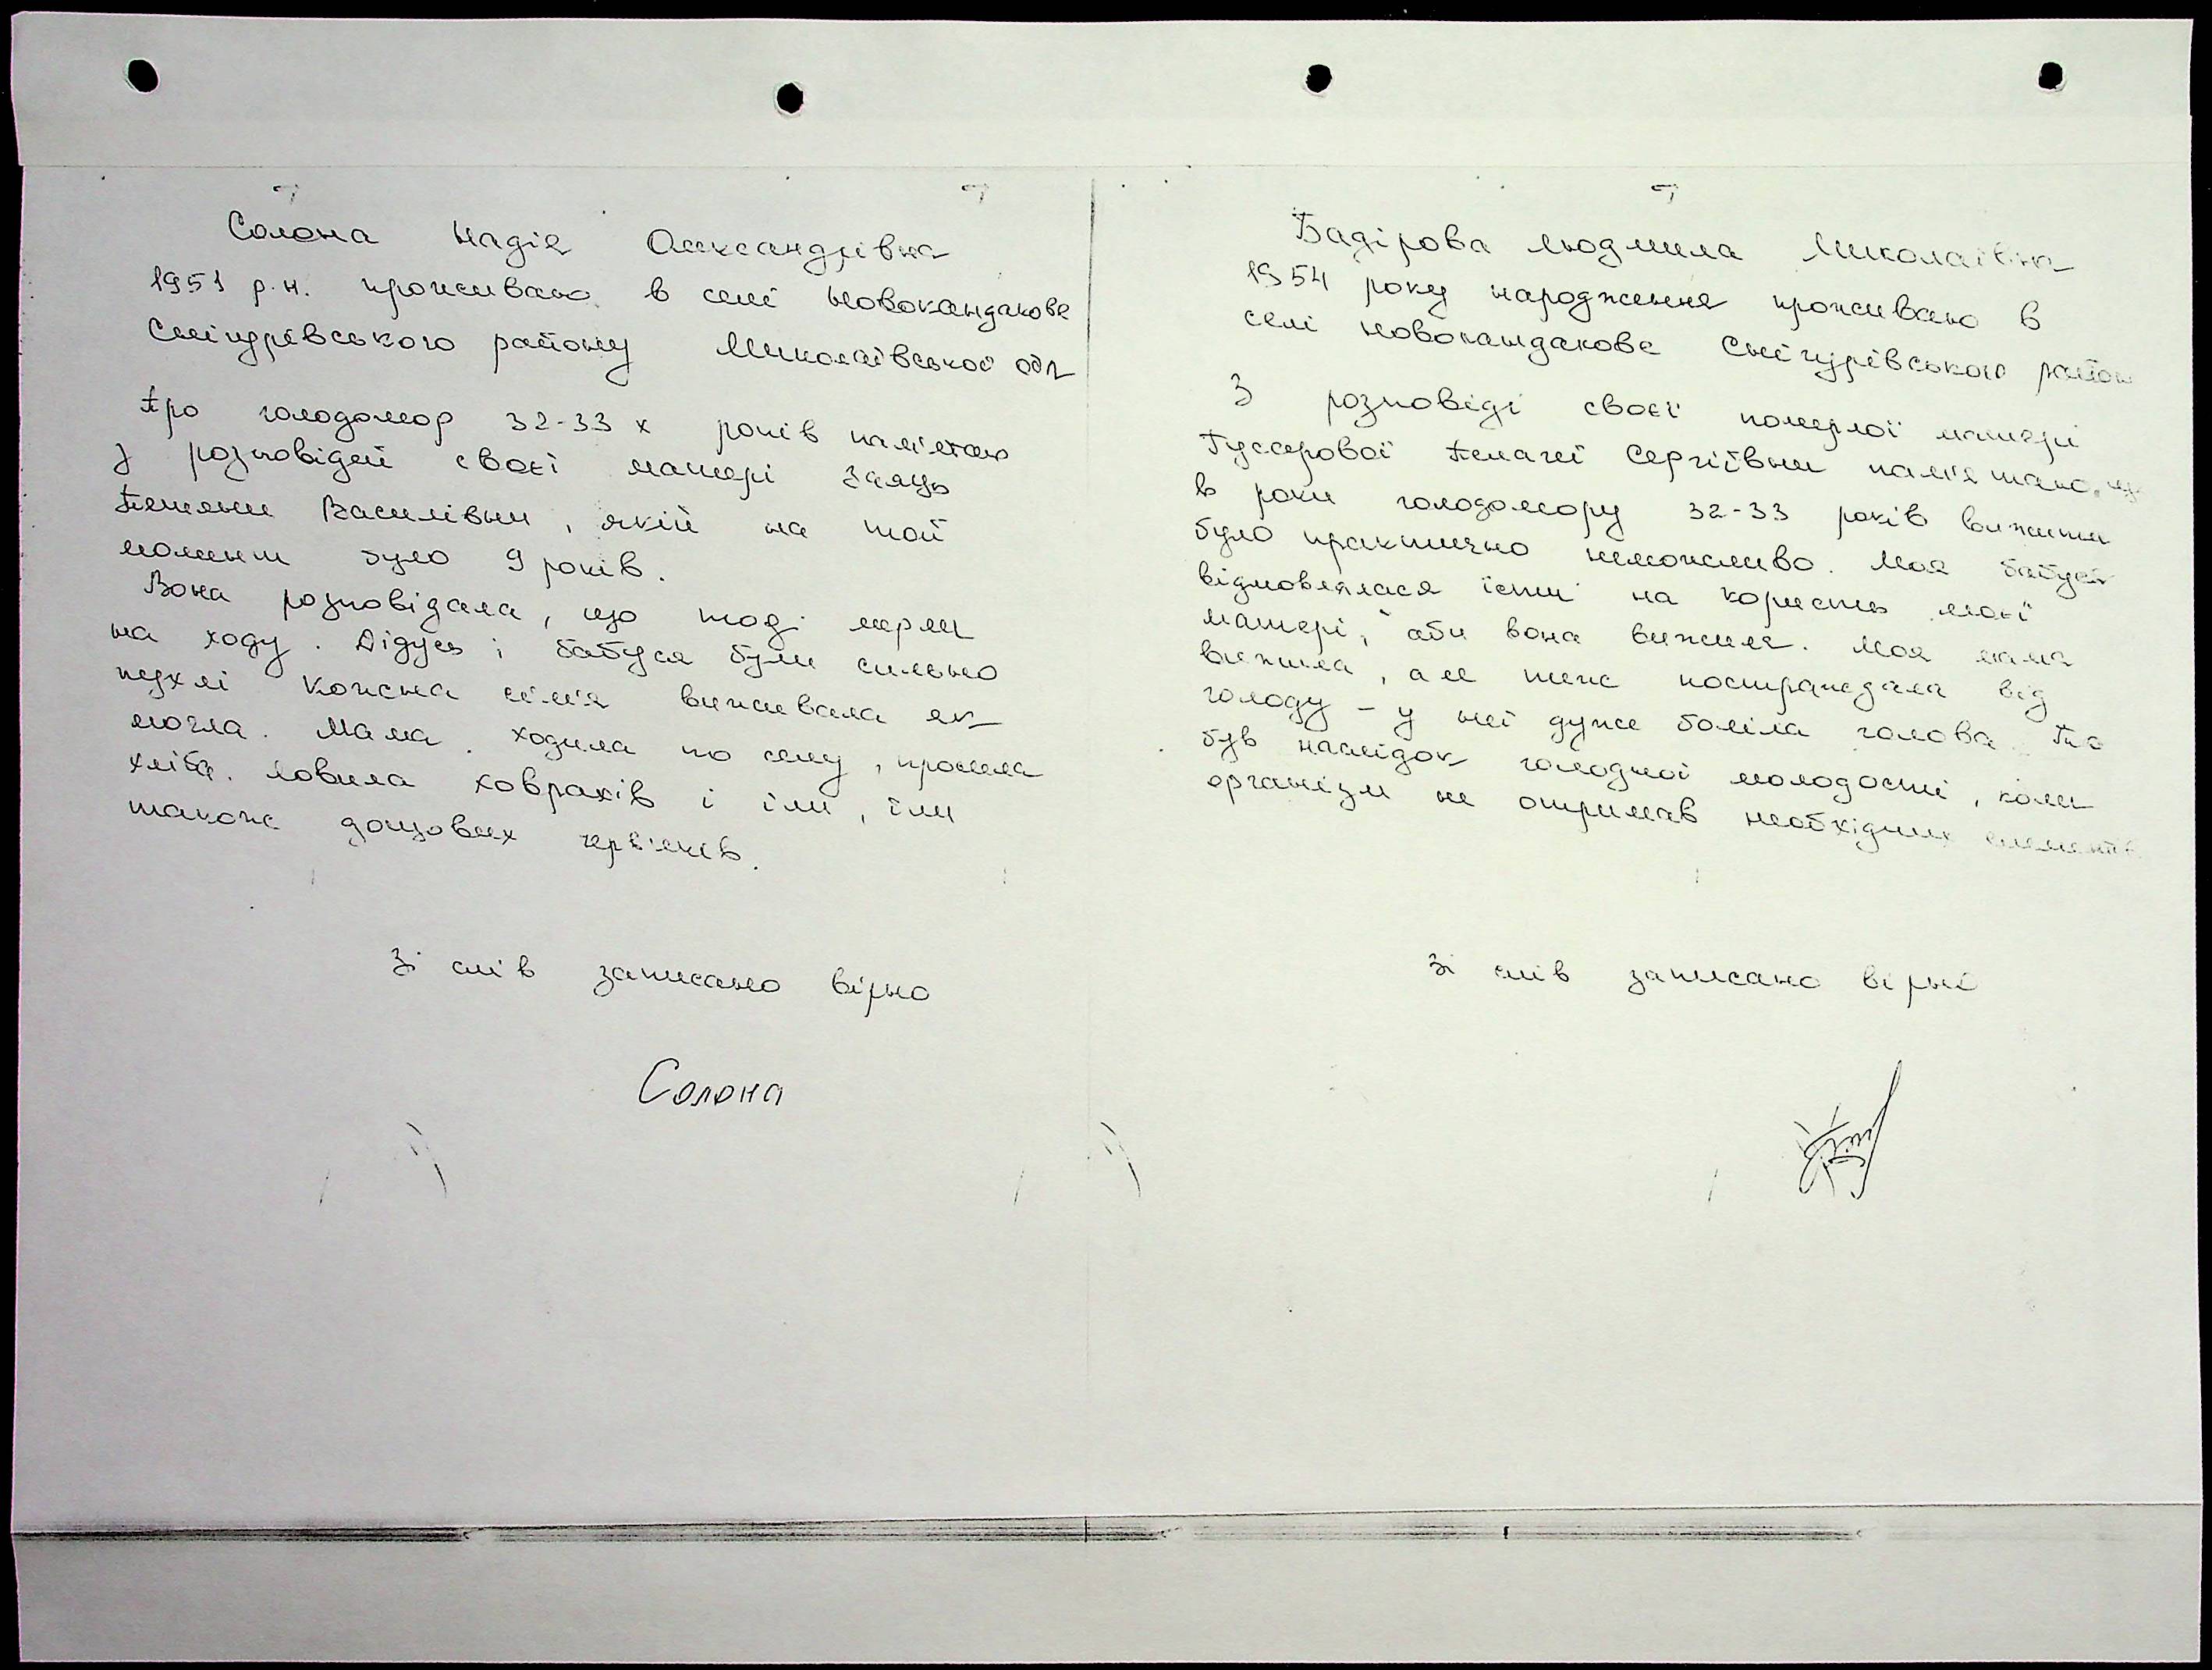 Солона Надія Олександрівна
1951 р.н. проживаю в селі Новокандакове
Снігурівського району Миколаївської обл
Про голодомор 32-33 х років пам'ятаю
з розповідей своєї матері Заяць
Пелагеї Василівни, якій на той
момент було 9 років.
Вона розповідала, що тоді мерли
на ходу. Дідусь і бабуся були сильно
пухлі Кожна сім'я виживала як
могла. Мама ходила по селу, просила
хліба. Ловила ховрахів і їли, їли
також дощових черв'яків.
Зі слів записано вірно
Солона
Бадірова Людмила Миколаївна
1954 року народження проживаю в
селі Новокандакове Снігурівського району
З розповіді своєї померлої матері
Гуссерової Пелагеї Сергіївни пам'ятаю, що
в роки голодомору 32-33 років вижити
було практично неможливо. Моя бабуся
відмовлялася їсти на користь моєї
матері, аби вона вижила. Моя мама
вижила, але теж постраждала від
голоду - у неї дуже боліла голова. Це
був наслідок голодної молодості, коли
організм не отримав необхідних елементів
Зі слів записано вірно